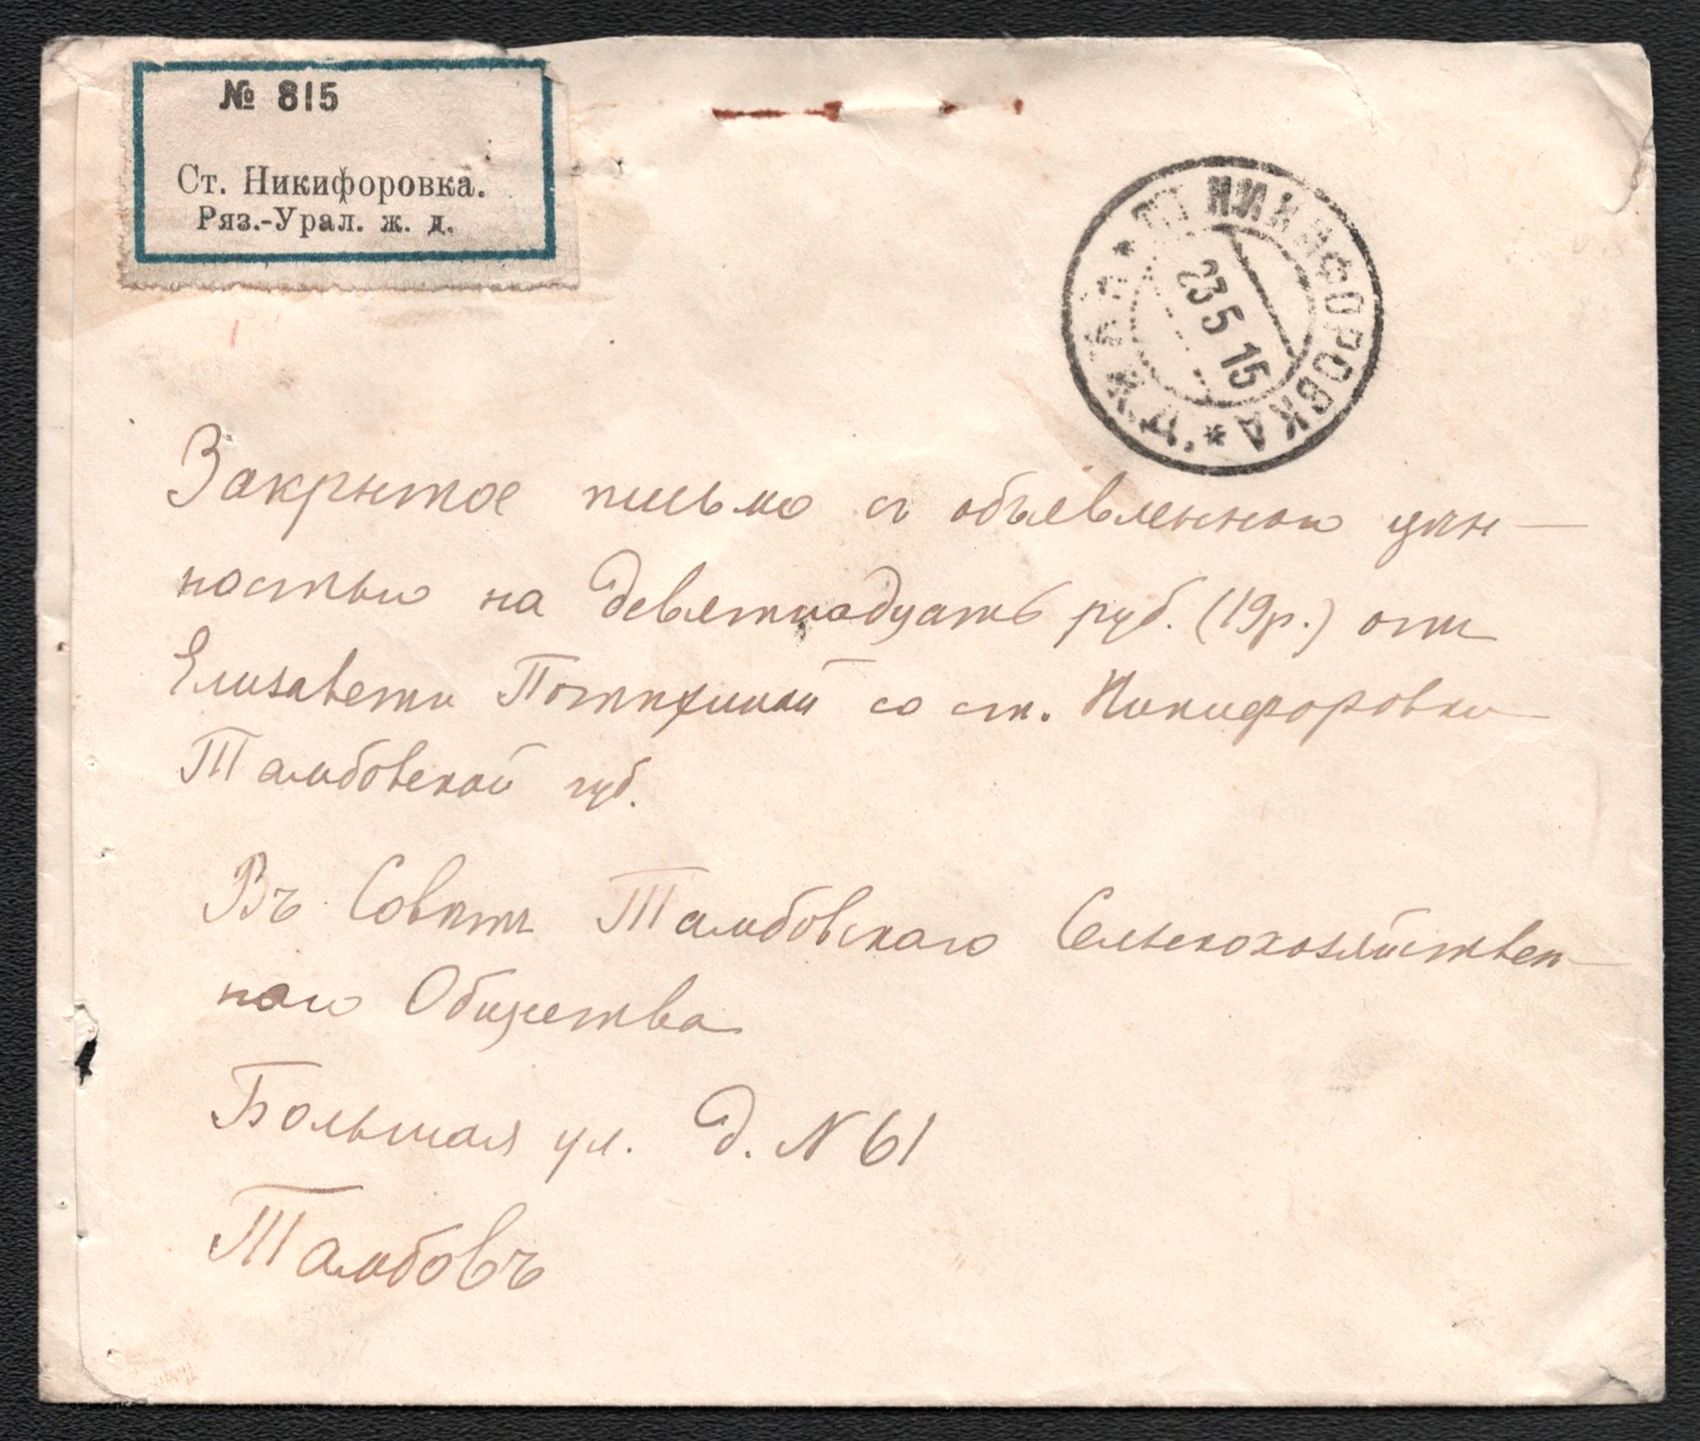 № 815
Ст. Никифоровка.
Ряз.-Урал. ж. д.
ПО НИКИФОРОВКА
23 5 15
Р.У.Ж.Д.
Закрытое письмо съ объявленной цѣн-
ностью на девятнадцать руб. (19р.) отъ
Елизаветы со ст. Никифоровки
Тамбовской губ.
Въ Совѣтъ Тамбовскаго Сельскохозяйствен-
наго Общества
Большая ул. д. N 61
Тамбовъ